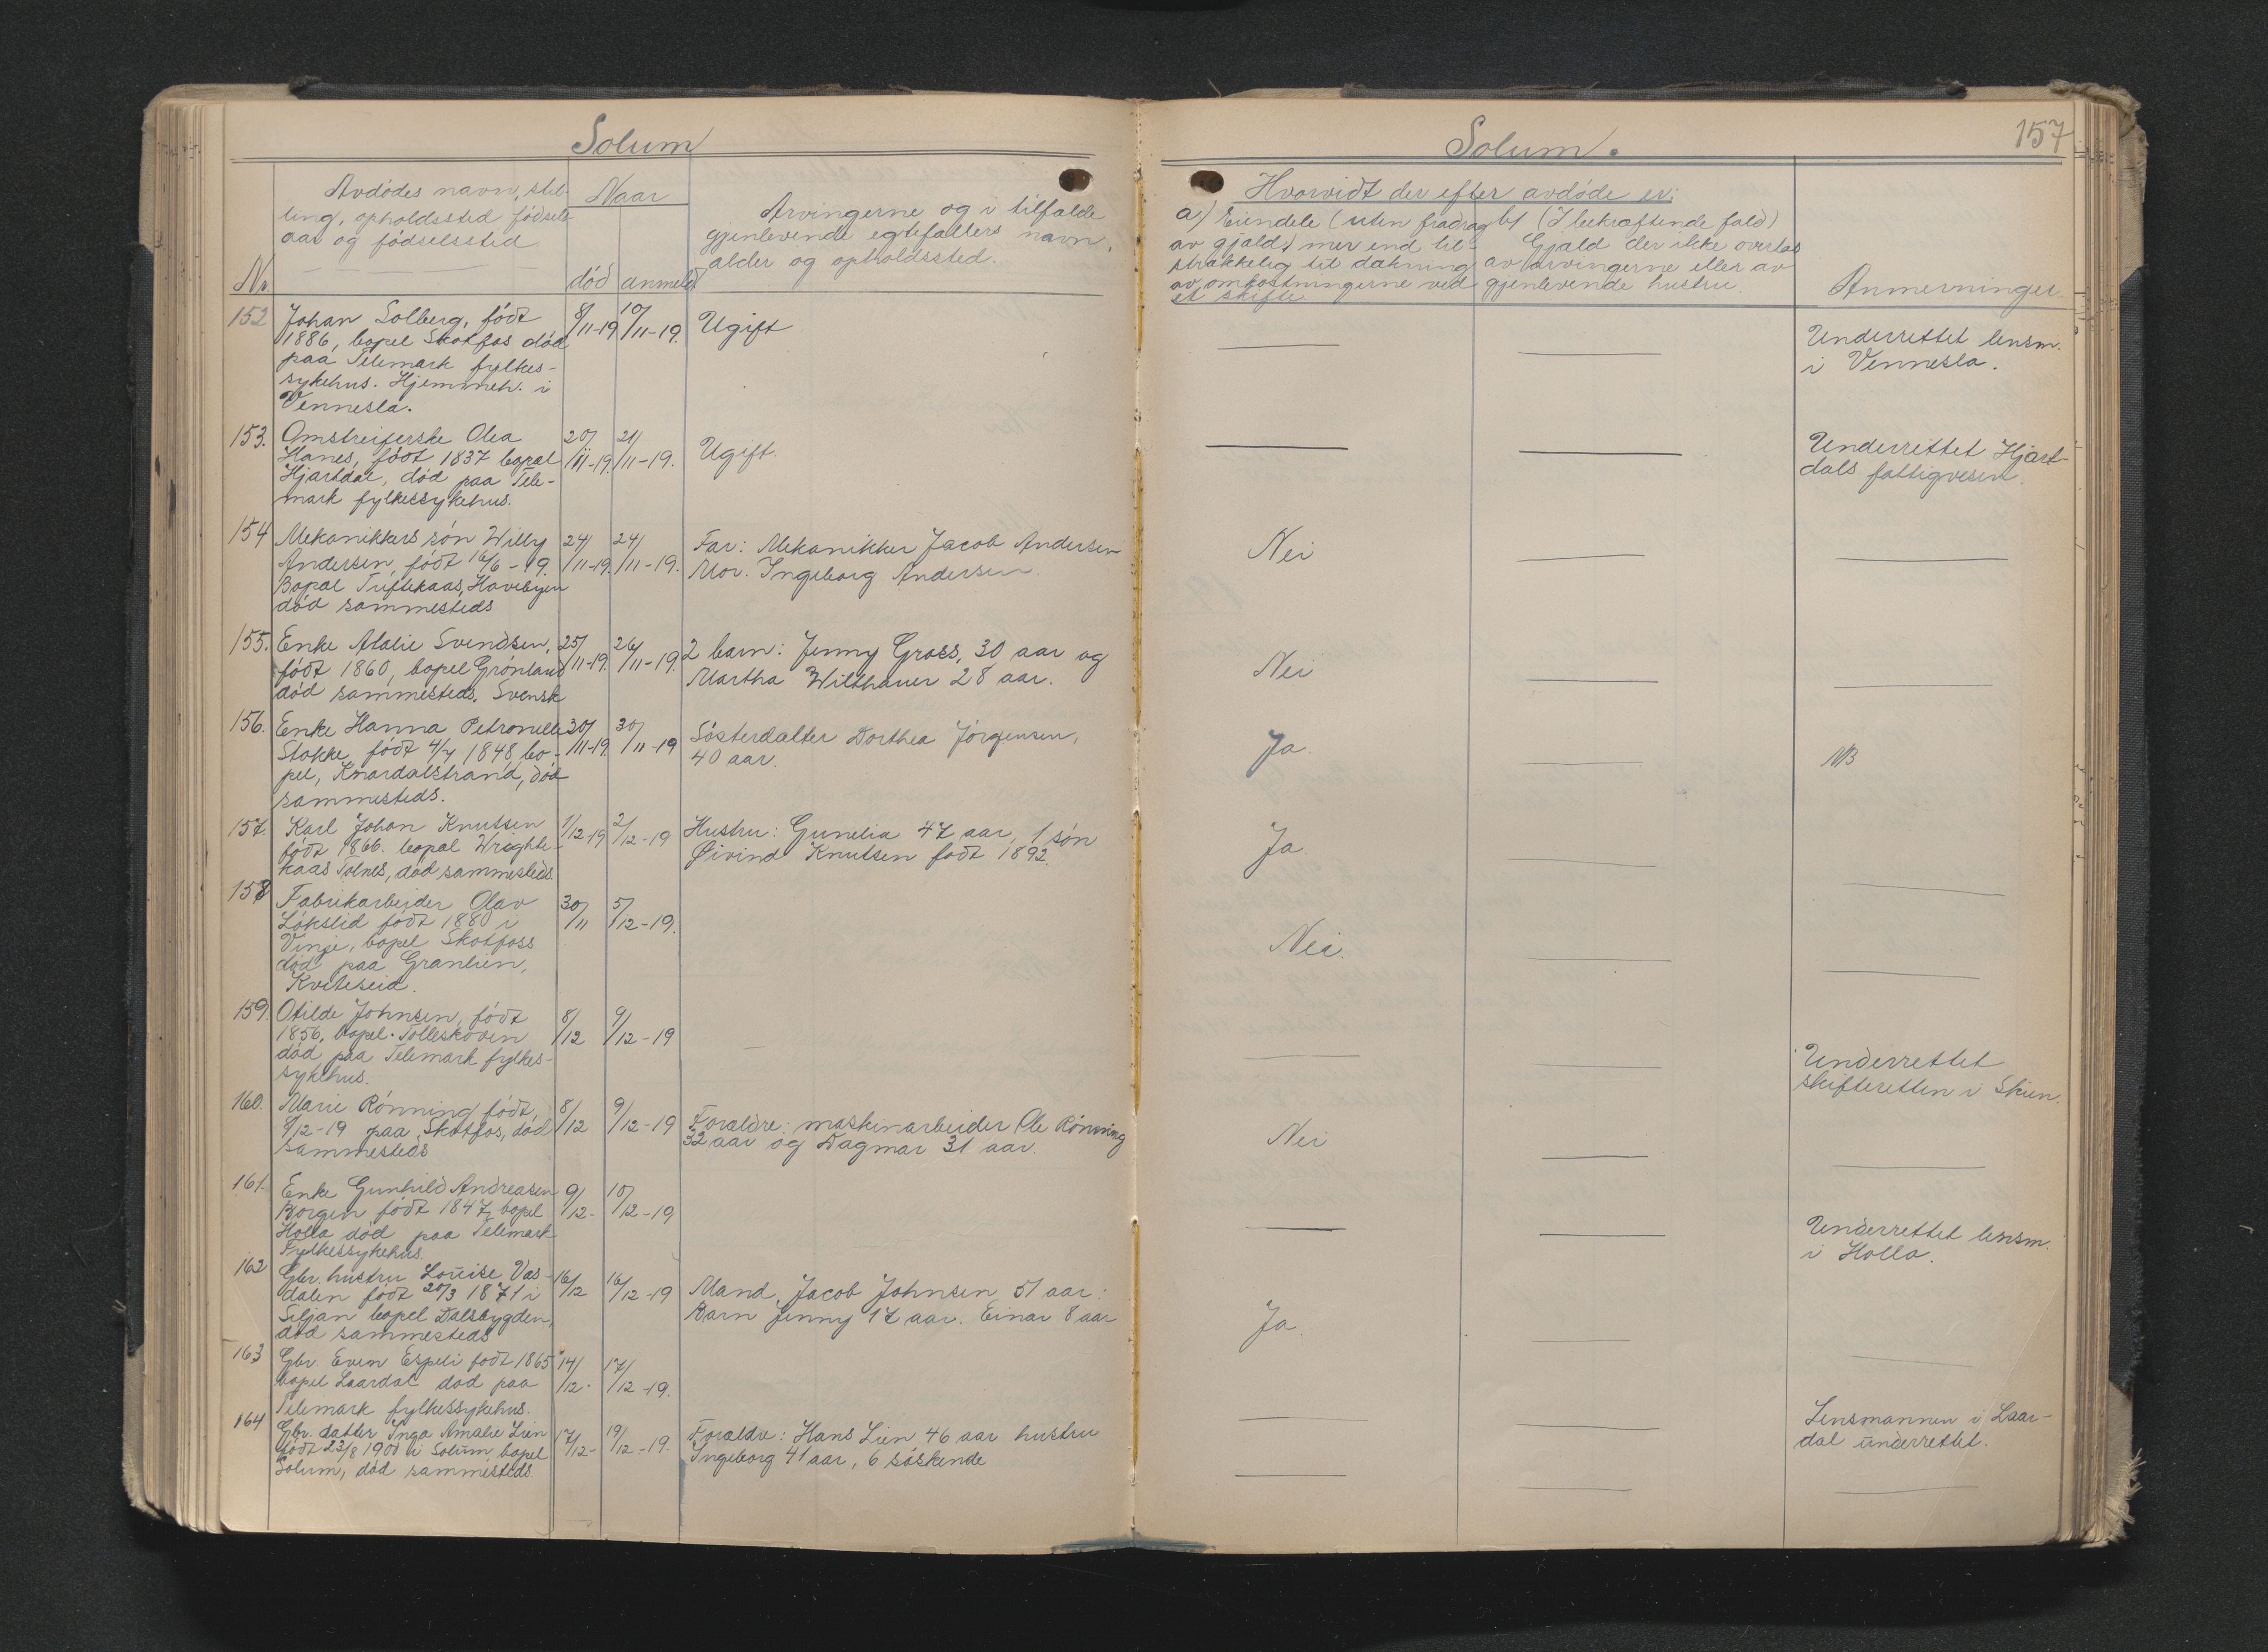 Solum
Avdødes navn, stil-
ling, opholdssted fødsels
aar og fødselssted
Nr
Naar
død anmeldt
Arvingerne og i tilfælde
gjenlevende egtefællers navn,
alder og opholdssted.
152 Johan Solberg, født 8/11-19 10/11-19. Ugift
1886, bopel Skotfos død
paa Telemark fylkes-
sykehus. Hjemmeh. i
Vennesla.
153. Omstreiferske Olea 20/11-19. 21/11-19. Ugift.
Hanes, født 1837 bopæl
Hjartdal, død paa Tele-
mark fylkessykehus.
154 Mekanikkers søn Willy 24/11-19. 24/11-19. Far: Mekanikker Jacob Andersen
Andersen, født 16/6-19. Mor. Ingeborg Andersen.
Bopæl Tuftekaas, Havebyen
død sammesteds
155. Enke Atalie Svendsen, 25/11-19. 26/11-19. 2 barn: Jenny Gross, 30 aar og
født 1860, bopel Grønland Martha Wilthauer 28 aar.
død sammesteds. Svensk
156. Enke Hanna Petronelle 30/11-19. 30/11-19 Søsterdatter Dorthea Jørgensen,
Stokke, født 4/4 1848, bo- 40 aar.
pel, Knardalstrand, død
sammesteds.
157. Karl Johan Knutsen 1/12-19 2/12-19 Hustru: Gunelia 47 aar, 1 søn
født 1866. bopæl Wrighte- Øivind Knutsen født 1892.
kaas Tolnes, død sammesteds.
158 Fabrikarbeider Olav 30/11 5/12-19.
Løkslid født 1880 i
Vinje, bopel Skotfoss
død paa Granlien,
Kviteseid.
159. Otilde Johnsen, født 8/12 9/12-19 —
1856, bopel. Tolleskoven
død paa Telemark fylkes-
sykehus.
160. Marie Rønning født, 8/12 9/12-19 Forældre: maskinarbeider Ole Rønning
8/12-19 paa Skotfos, død 32 aar og Dagmar 31 aar.
sammesteds
161. Enke Gunhild Andreasen 9/12- 10/12-19
Borgen født 1847, bopel
Holla død paa Telemark
Fylkessykehus.
162 Gbr. hustru Louise Vas- 16/12 16/12-19 Mand Jacob Johnsen 51 aar:
dalen født 20/3 1871 i Barn Jenny 17 aar. Einar 8 aar
Siljan bopel Dalsbygden,
død sammesteds
163 Gbr. Even Espeli født 1865 14/12. 17/12-19.
bopel Laardal død paa
Telemark fylkessykehus.
164 Gbr. datter Inga Amalie Lien 17/12- 19/12-19. Forældre: Hans Lien 46 aar hustru
født 23/8 1900 i Solum, bopel Ingeborg 41 aar, 6 søskende
Solum, død sammesteds.
Solum.
157
Hvorvidt der efter avdøde er:
a) Eiendele (uten fradrag
av gjæld) mer end til-
strækkelig til dækning
av omkostningerne ved
et skifte
b) (I bekræftende fald)
Gjæld der ikke overtas
av arvingerne eller av
gjenlevende hustru.
Anmerninger.
— — Underrettet lensm.
i Vennesla.
— — Underrettet Hjart-
dals fattigvesen.
Nei — —
Nei — —
Ja. — NB
Ja. — —
Nei. — —
— — Underrettet
skifteretten i Skien.
Nei — —
— — Underrettet lensm.
i Holla.
Ja — —
— — Lensmannen i Laar-
dal underrettet.
— — —